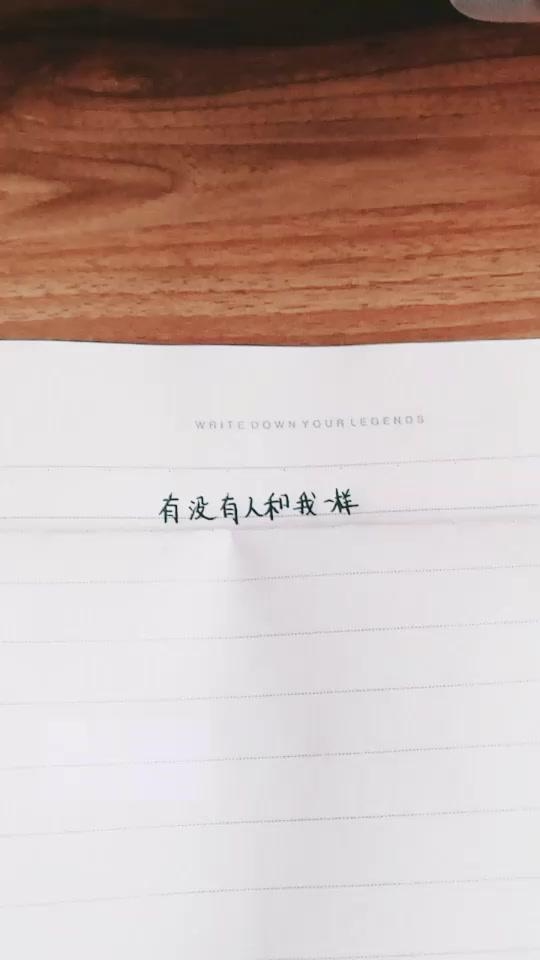 WRITE DOWN YOUR LEGENDS
有没有人和我一样